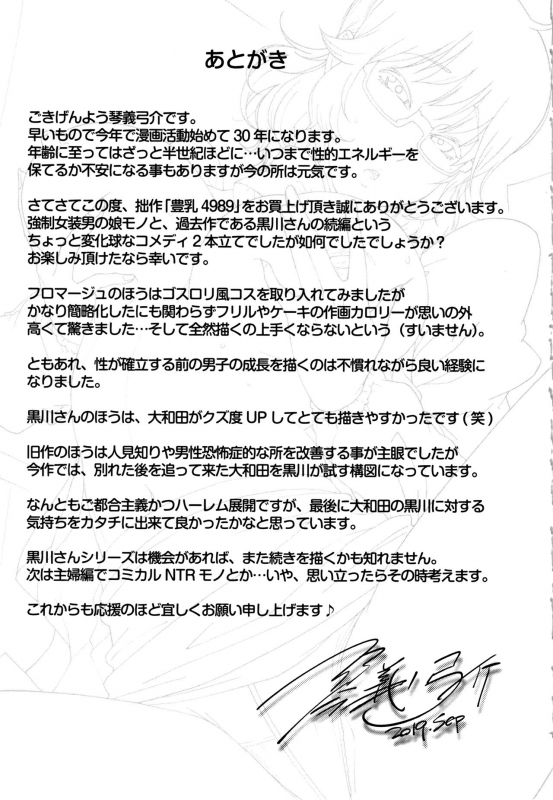 あとがき
ごきげんよう琴義弓介です。
早いもので今年で漫画活動始めて30年になります。
年齢に至ってはざっと半世紀ほどに…いつまで性的エネルギーを
保てるか不安になる事もありますが今の所は元気です。
さてさてこの度、拙作「豊乳4989」をお買上げ頂き誠にありがとうございます。
強制女装男の娘モノと、過去作である黒川さんの続編という
ちょっと変化球なコメディ2本立てでしたが如何でしたでしょうか?
お楽しみ頂けたなら幸いです。
フロマージュのほうはゴスロリ風コスを取り入れてみましたが
かなり簡略化したにも関わらずフリルやケーキの作画カロリーが思いの外
高くて驚きました…そして全然描くの上手くならないという(すいません)。
ともあれ、性が確立する前の男子の成長を描くのは不慣れながら良い経験に
なりました。
黒川さんのほうは、大和田がクズ度UPしてとても描きやすかったです(笑)
旧作のほうは人見知りや男性恐怖症的な所を改善する事が主眼でしたが
今作では、別れた後を追って来た大和田を黒川が試す構図になっています。
なんともご都合主義かつハーレム展開ですが、最後に大和田の黒川に対する
気持ちをカタチに出来て良かったかなと思っています。
黒川さんシリーズは機会があれば、また続きを描くかも知れません。
次は主婦編でコミカルNTRモノとか…いや、思い立ったらその時考えます。
これからも応援のほど宜しくお願い申し上げます♪
琴義弓介
2019.Sep